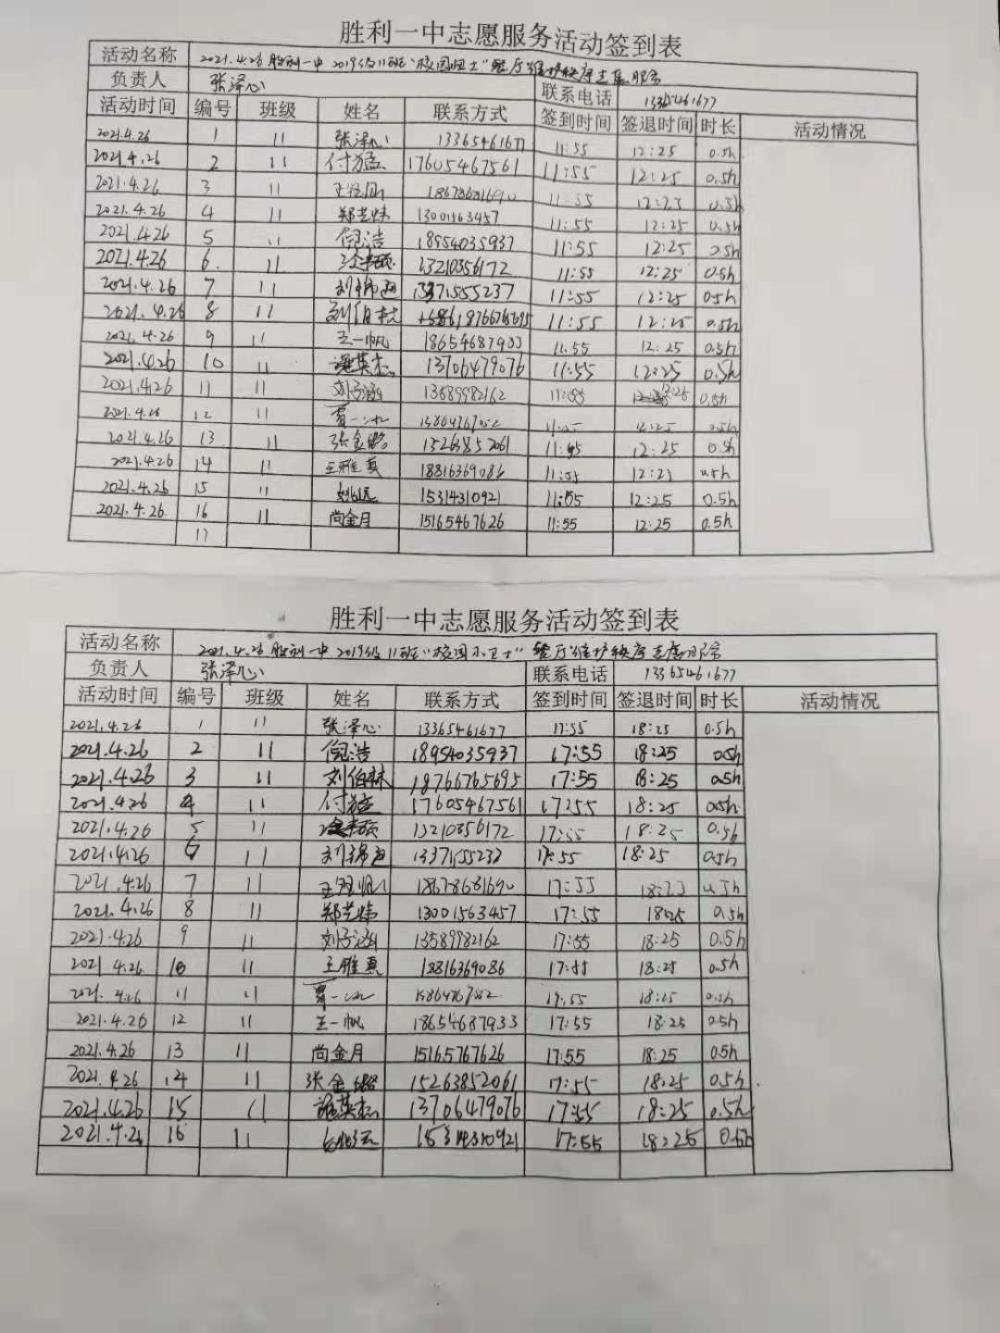 胜利一中志愿服务活动签到表
活动名称 2021.4.26 胜利一中 2019级11班"校园卫士"餐厅维护秩序志愿服务
负责人 张泽心 联系电话 13365461677
活动时间 编号 班级 姓名 联系方式 签到时间 签退时间 时长 活动情况
2021.4.26 1 11 张泽心 13365461677 11:55 12:25 0.5h
2021.4.26 2 11 付猛 17605467561 11:55 12:25 0.5h
2021.4.26 3 11 11:55 12:25 0.5h
2021.4.26 4 11 郑艺炜 13001563457 11:55 12:25 0.5h
2021.4.26 5 11 倪浩 18954035937 11:55 12:25 0.5h
2021.4.26 6 11 13210356172 11:55 12:25 0.5h
2021.4.26 7 11 11:55 12:25 0.5h
2021.4.26 8 11 刘伯林 11:55 12:25 0.5h
2021.4.26 9 11 王一帆 18654687933 11:55 12:25 0.5h
2021.4.26 10 11 13706479076 11:55 12:25 0.5h
2021.4.26 11 11 刘子涵 13589982162 11:55 12:25 0.5h
2021.4.26 12 11 11:55 12:25 0.5h
2021.4.26 13 11 15263852061 11:55 12:25 0.5h
2021.4.26 14 11 王雅真 18816369086 11:55 12:25 0.5h
2021.4.26 15 11 15314310921 11:55 12:25 0.5h
2021.4.26 16 11 尚金月 15165467626 11:55 12:25 0.5h
17
胜利一中志愿服务活动签到表
活动名称 2021.4.26 胜利一中 2019级11班"校园小卫士"餐厅维护秩序志愿服务
负责人 张泽心 联系电话 13365461677
活动时间 编号 班级 姓名 联系方式 签到时间 签退时间 时长 活动情况
2021.4.26 1 11 张泽心 13365461677 17:55 18:25 0.5h
2021.4.26 2 11 倪浩 18954035937 17:55 18:25 0.5h
2021.4.26 3 11 刘伯林 18766765695 17:55 18:25 0.5h
2021.4.26 4 11 付猛 17605467561 17:55 18:25 0.5h
2021.4.26 5 11 13210356172 17:55 18:25 0.5h
2021.4.26 6 11 17:55 18:25 0.5h
2021.4.26 7 11 17:55 18:25 0.5h
2021.4.26 8 11 郑艺炜 13001563457 17:55 18:25 0.5h
2021.4.26 9 11 刘子涵 13589982162 17:55 18:25 0.5h
2021.4.26 10 11 王雅真 18816369086 17:55 18:25 0.5h
2021.4.26 11 11 17:55 18:25 0.5h
2021.4.26 12 11 王一帆 18654687933 17:55 18:25 0.5h
2021.4.26 13 11 尚金月 15165767626 17:55 18:25 0.5h
2021.4.26 14 11 15263852061 17:55 18:25 0.5h
2021.4.26 15 11 13706479076 17:55 18:25 0.5h
2021.4.26 16 11 15314310921 17:55 18:25 0.5h